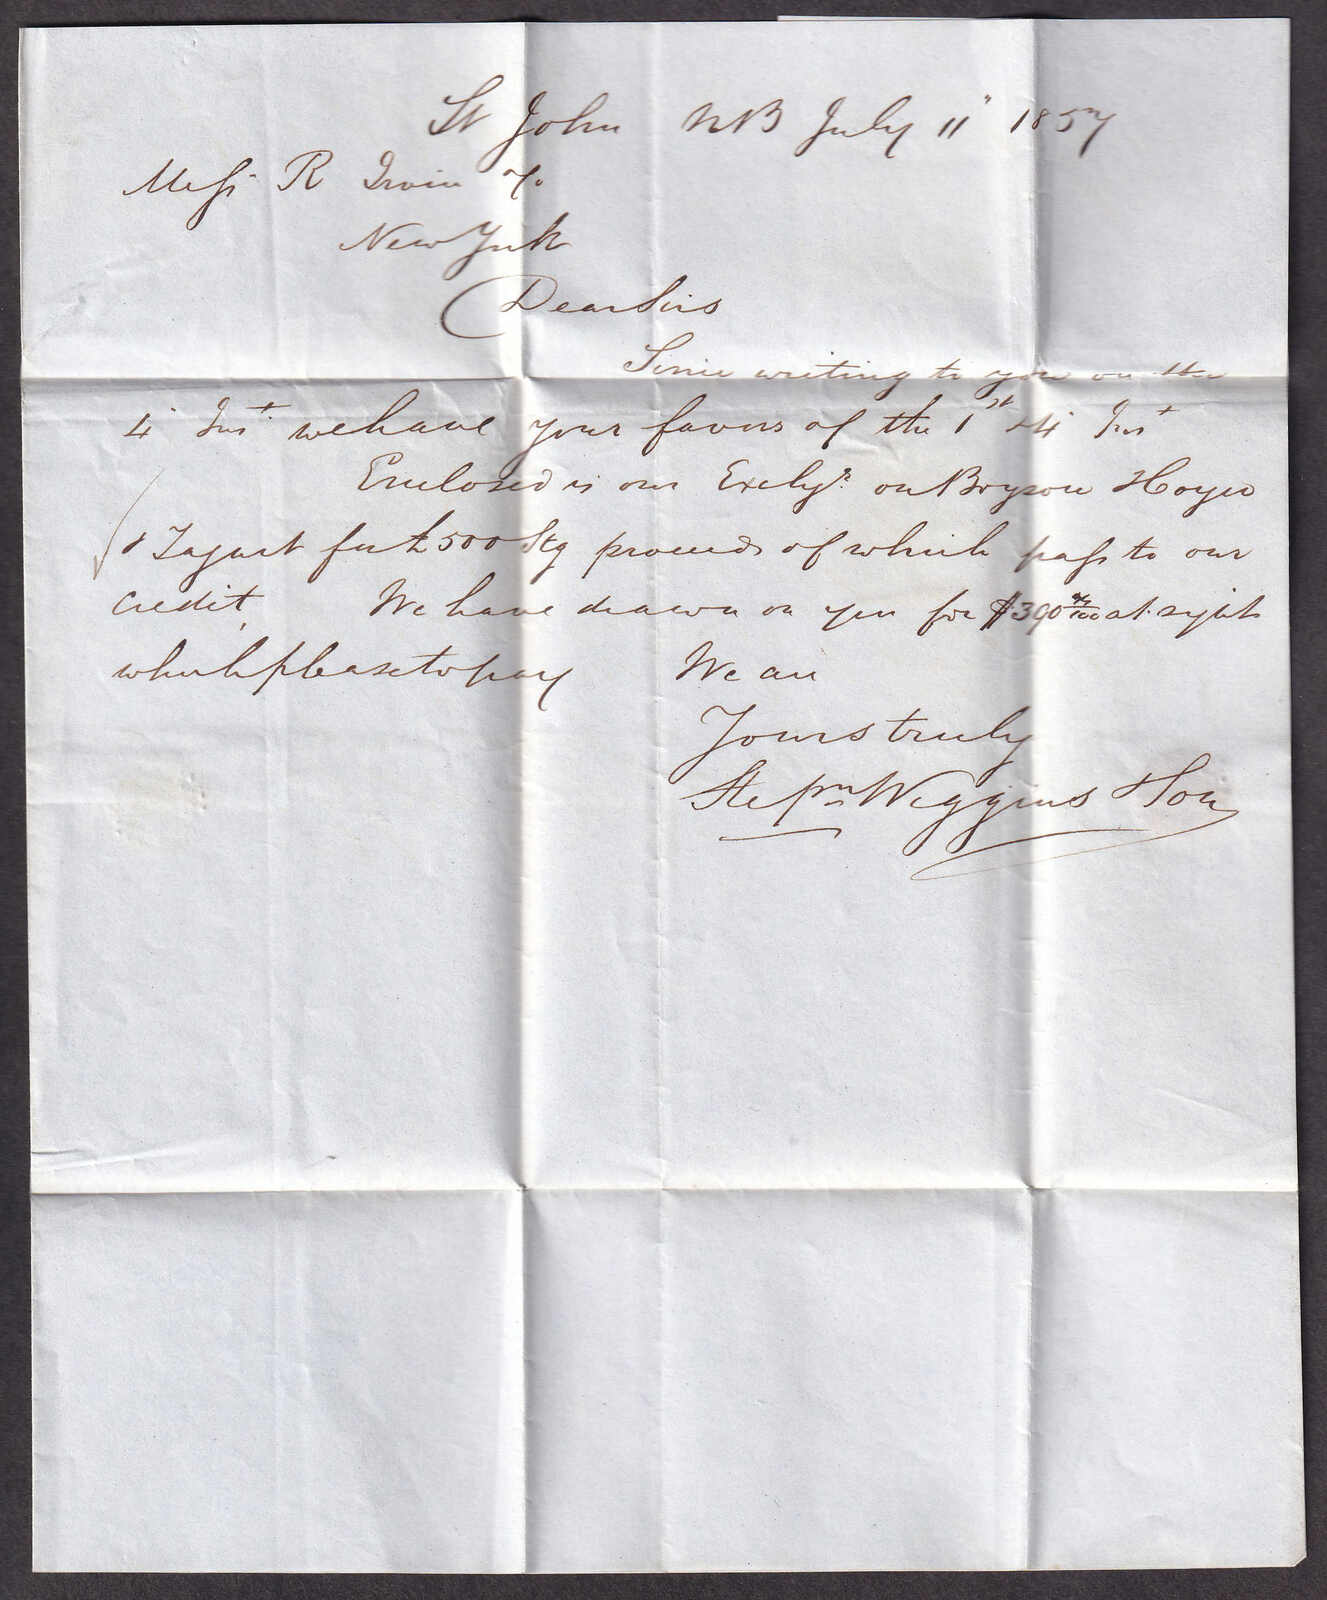 St John NB July 11" 1857
Mess R Irvin & Co
New York
Dear Sirs
Since writing to you on the
4" Inst we have your favors of the 1st & 4" Inst
Enclosed is our Exchge on Bryson
& Tagart for £500 Stg proceeds of which pass to our
credit, We have drawn on you for $390 at sight
which please to pay We are
Yours truly
Stepn Wiggins & Son